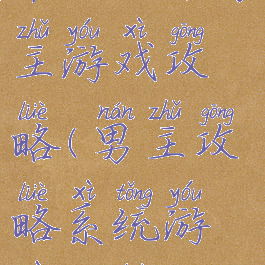 zhǔ yóu xì gōng
主游戏攻
lüè nán zhǔ gōng
略(男主攻
lüè xì tǒng yóu
略系统游